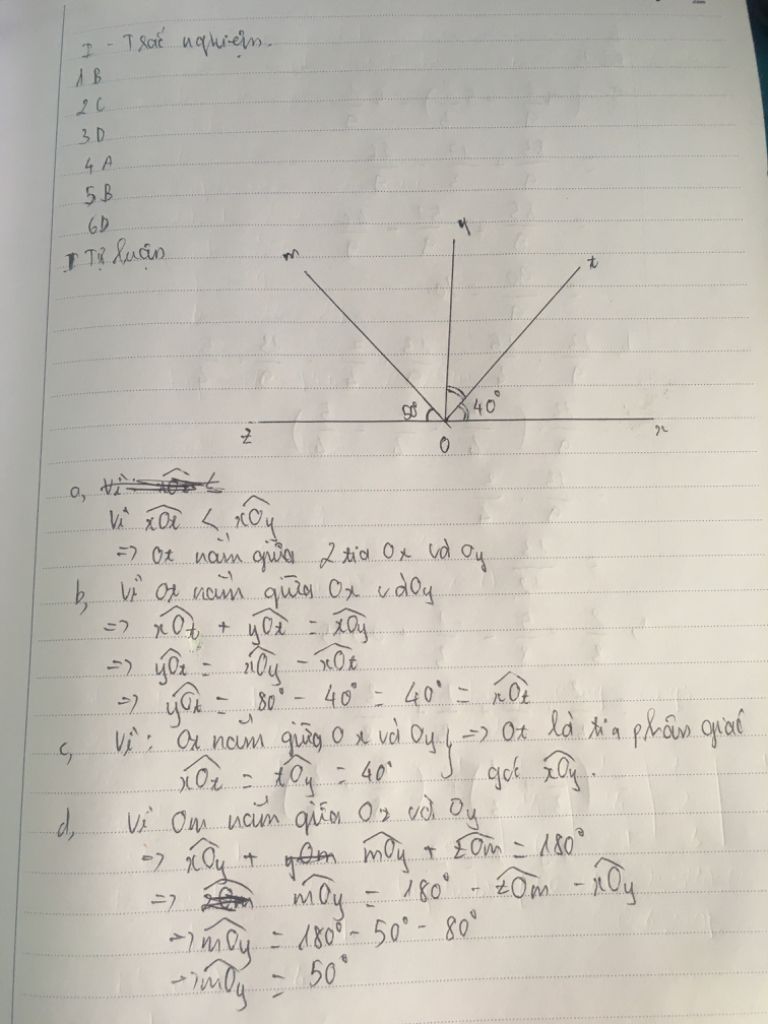 I - Trắc nghiệm.
1 B
2 C
3 D
4 A
5 B
6 D
II Tự luận
m
y
t
50°
40°
z
O
x
a,
Vì xOt < xOy
=> Ot nằm giữa 2 tia Ox và Oy
b, Vì Ot nằm giữa Ox và Oy
=> xOt + yOt = xOy
=> yOt = xOy - xOt
=> yOt = 80° - 40° = 40° = xOt
c, Vì: Ot nằm giữa Ox và Oy } => Ot là tia phân giác
xOt = tOy = 40° góc xOy.
d, Vì Om nằm giữa Oz và Oy
=> xOy + mOy + zOm = 180°
=> mOy = 180° - zOm - xOy
=> mOy = 180° - 50° - 80°
=> mOy = 50°